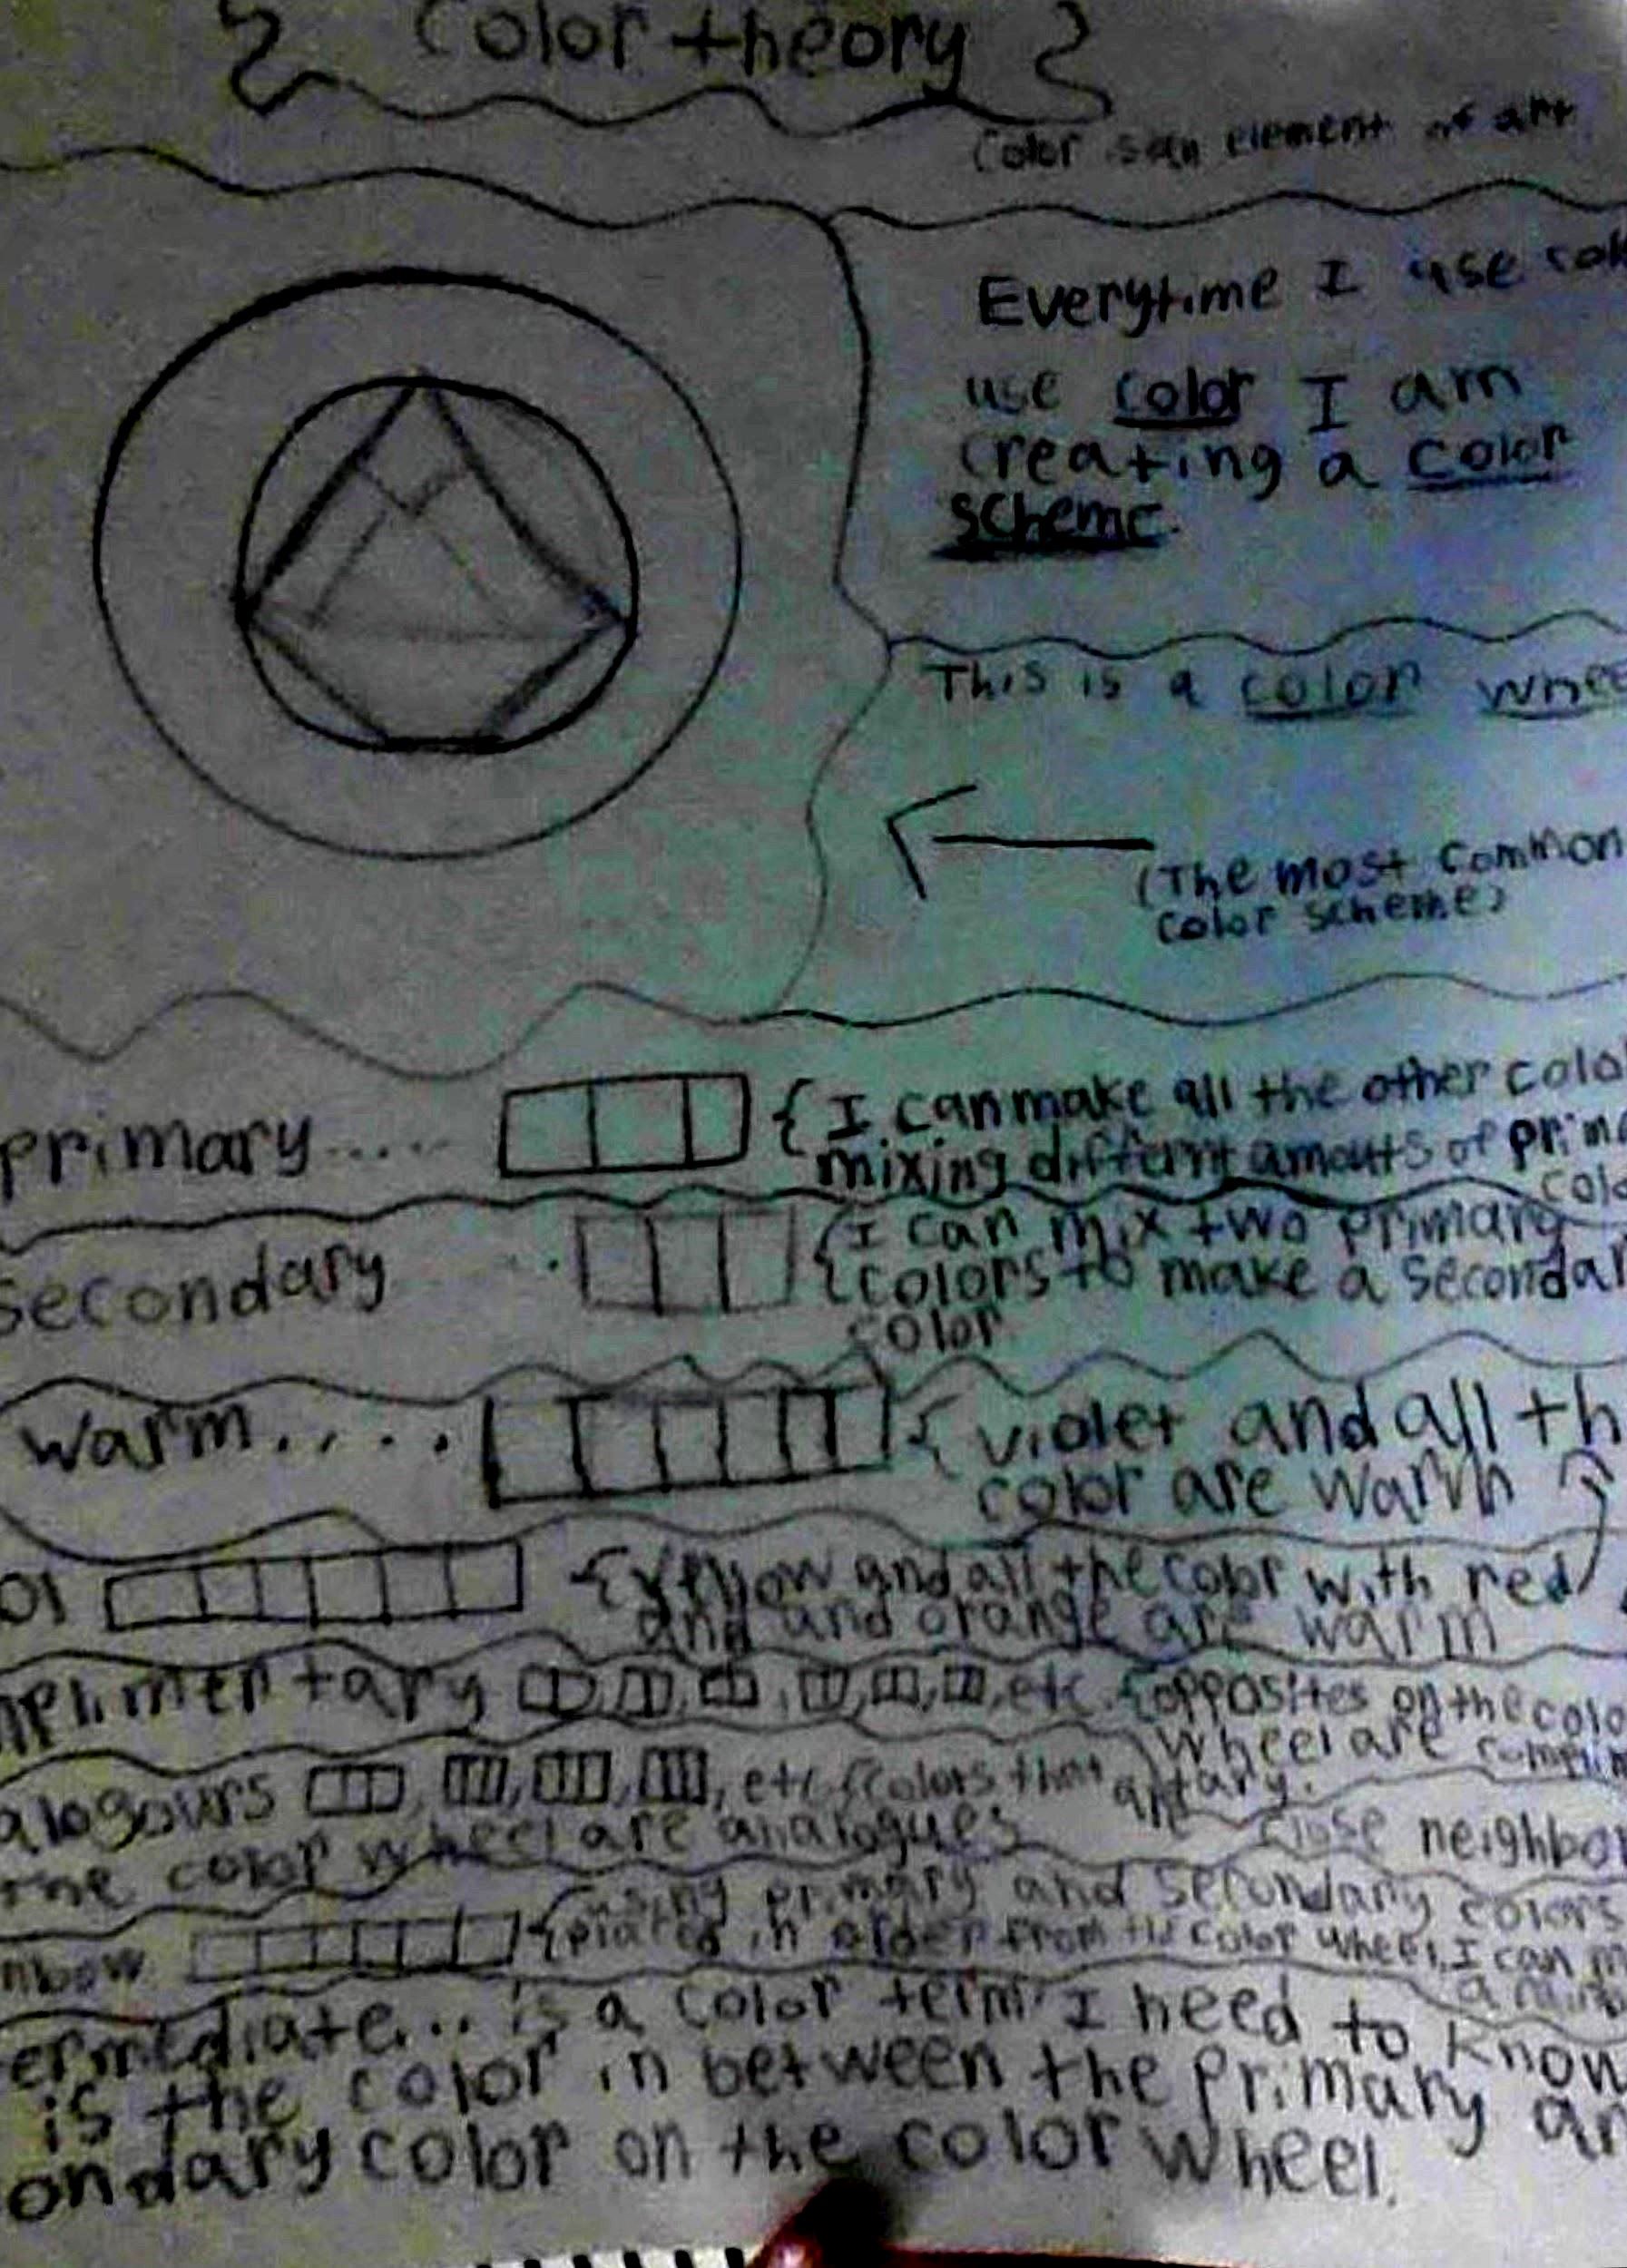 Color theory
Color is an element of art
Everytime I use
use color I am
creating a color
scheme.
This is a color
(The most common
color scheme)
primary.....
{I can make all the other
mixing different amouts of
secondary
{I can mix two primary
colors to make a
color
warm.....
{violet and all
color are warm
{Yellow and all the color with red
and and orange are warm
etc. {opposites on the
wheel are
etc {colors that
close
color wheel are analogues
{using primary and secondary colors
placed in order from the color wheel, I can
is a color term I need to know
is the color in between the primary
color on the color wheel.